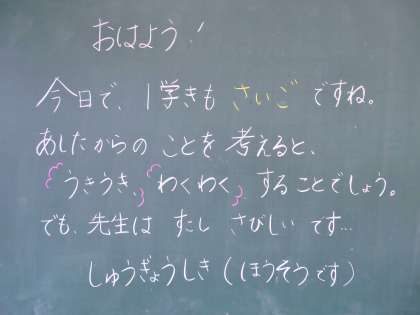 おはよう!
今日で、1学きも さいご ですね。
あしたからの ことを 考えると、
うきうき、わくわく、することでしょう。
でも、先生は すこし さびしい です…
しゅうぎょうしき(ほうそうです)